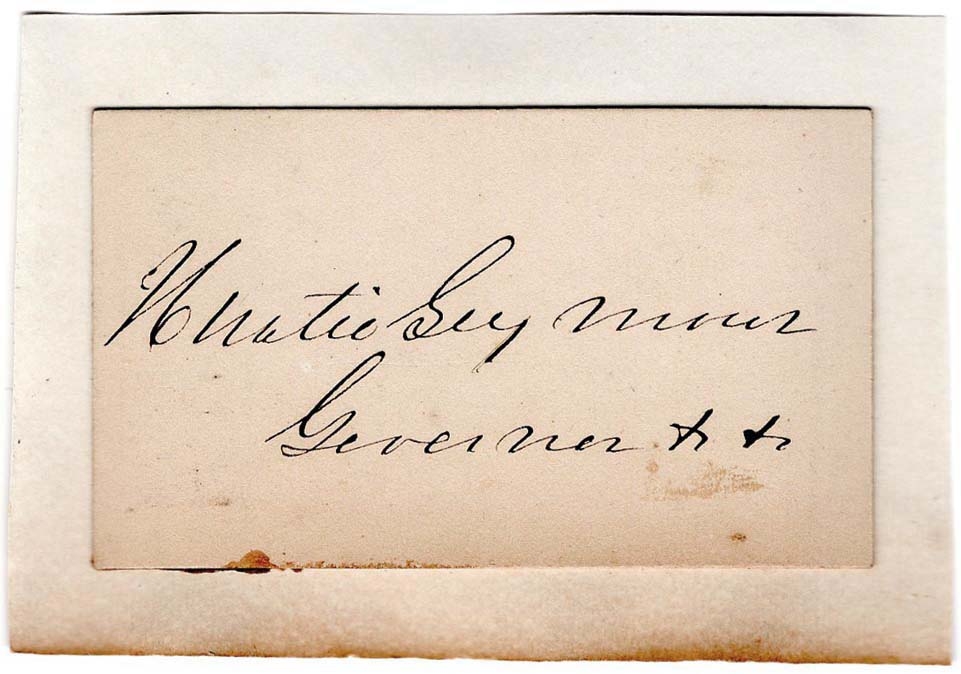 Horatio Seymour
Governor &c &c